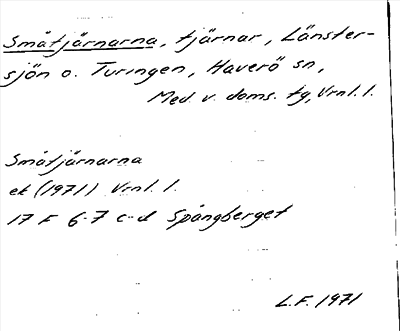 Småtjärnarna, tjärnar, Länster-
sjön o. Turingen, Haverö sn,
Med. v. doms. tg, Vrnl. l.
Småtjärnarna
ek (1971) Vrnl. l.
17 F 6-7 c-d Spångberget
L.F. 1971